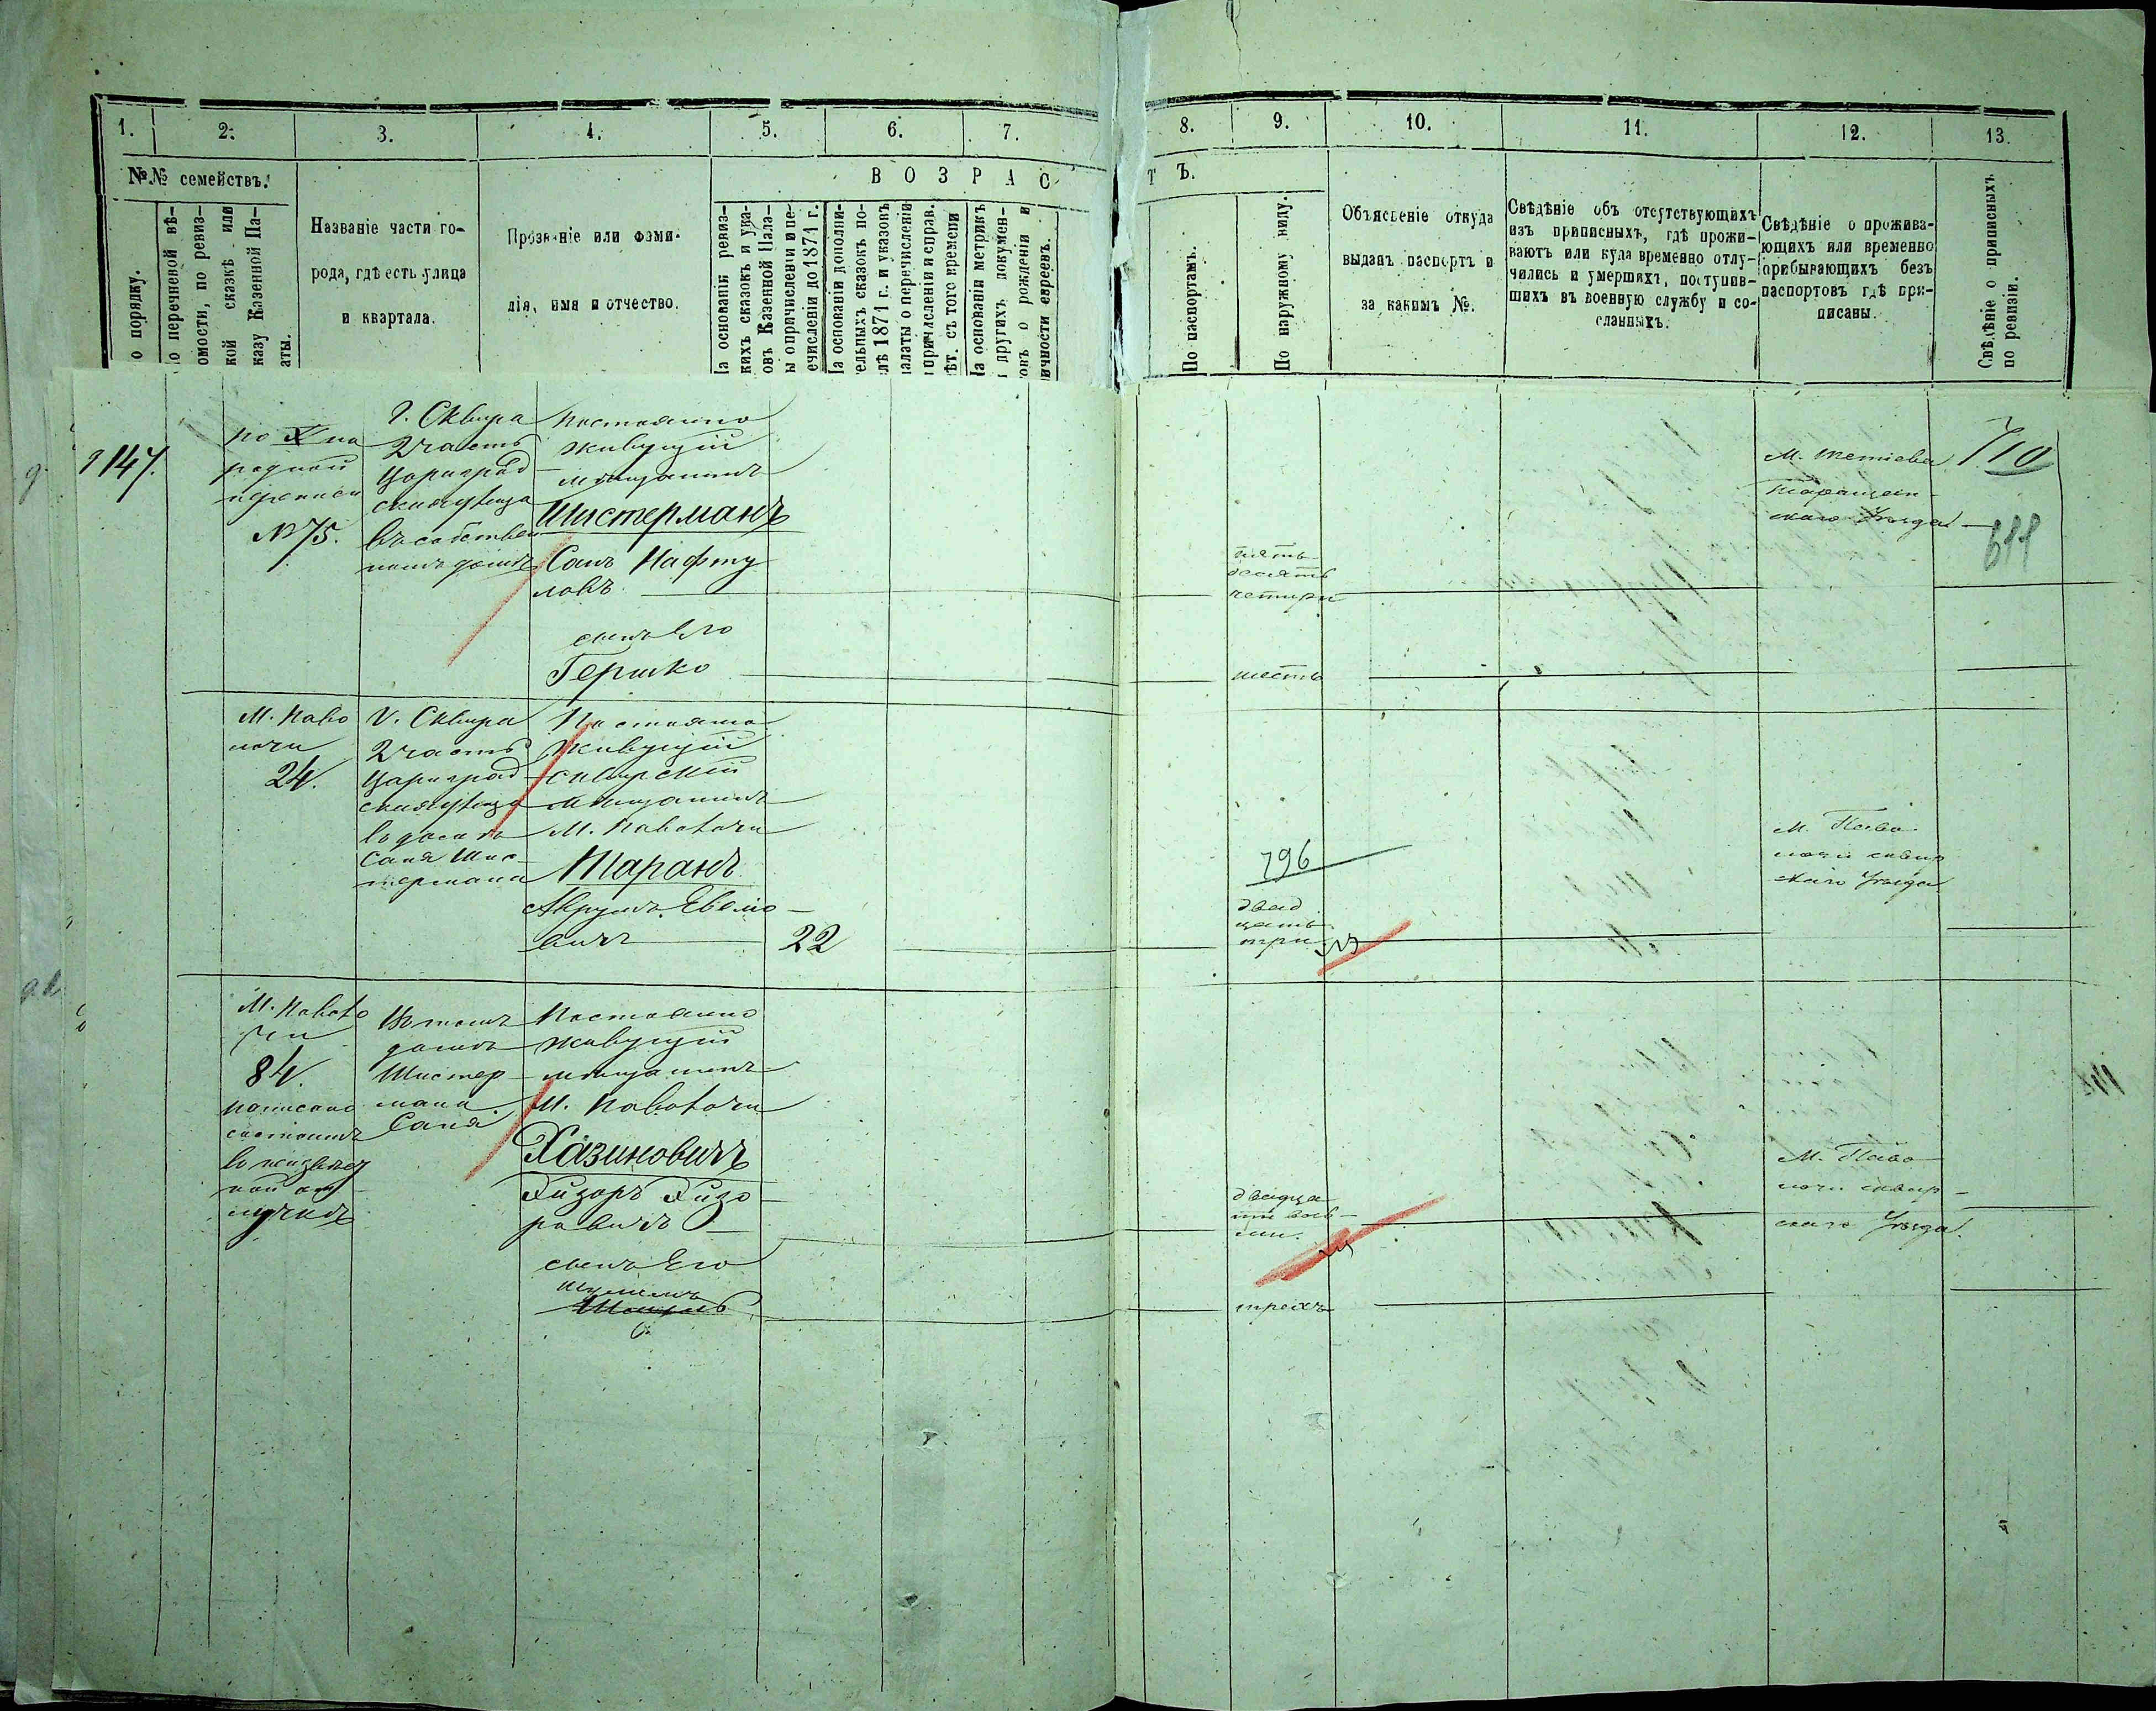 1.
2.
3.
4.
5.
6.
7.
8.
9.
10.
11.
12.
13.
№№ семействъ.
о порядку.
о перечневой вѣ-
омости, по ревиз-
кой сказкѣ или
казу Казенной Па-
аты.
Названіе части го-
рода, гдѣ есть улица
и квартала.
Прозваніе или фами-
лія, имя и отчество.
ВОЗРАС
ТЪ.
а основаніи ревиз-
кихъ сказокъ и ука-
овъ Казенной Пала-
ы о причисленіи и пе-
ечисленіи до 1871 г.
а основаніи дополни-
ельныхъ сказокъ по-
лѣ 1871 г. и указовъ
алаты о перечисленіи
причисленіи и справ.
ѣт. съ того времени
а основаніи метрикъ
другихъ докумен-
овъ о рожденіи и
ичности евреевъ.
По паспортамъ.
По наружному виду.
Объясненіе откуда
выданъ паспортъ и
за какимъ №.
Свѣдѣніе объ отсутствующихъ
изъ приписныхъ, гдѣ прожи-
ваютъ или куда временно отлу-
чились и умершихъ, поступив-
шихъ въ военную службу и со-
сланныхъ.
Свѣдѣніе о прожива-
ющихъ или временно
прибывающихъ безъ
паспортовъ гдѣ при-
писаны.
Свѣдѣніе о приписныхъ
по ревизіи.
147.
по X на
родной
переписи
№ 75.
Г. Сквира
2 часть
Цариград
ская улица
въ собствен
номъ домѣ
Постоянно
живущій
мѣщанинъ
Шистерманъ
Сань Нафту
ловъ
сынъ Его
Гершко
пять
десять
четыри
шесть
М. Тетіева
Таращан-
скаго Уѣзда
710
611
М. Паво
лочи
24.
Г. Сквира
2 часть
Цариград
ская улица
въ домѣ
Саня Шис-
термана
Постоянно
живущій
сквирскій
мѣщанинъ
М. Паволочи
Таранъ
Аврумъ
вичъ
22
796
двад
цать
три
23
М. Паво
лочи сквир
скаго Уѣзда
М. Паволо
чи
84.
написано
состоитъ
въ неизвѣст
ной от-
лучкѣ
Въ томъ
домѣ
Шистер
мана
Саня
Постоянно
живущій
мѣщанинъ
М. Паволочи
Хазиновичъ
ровичъ
сынъ Его
двадца
ти вось-
ми.
трехъ
М. Паво
лочи сквир-
скаго Уѣзда.